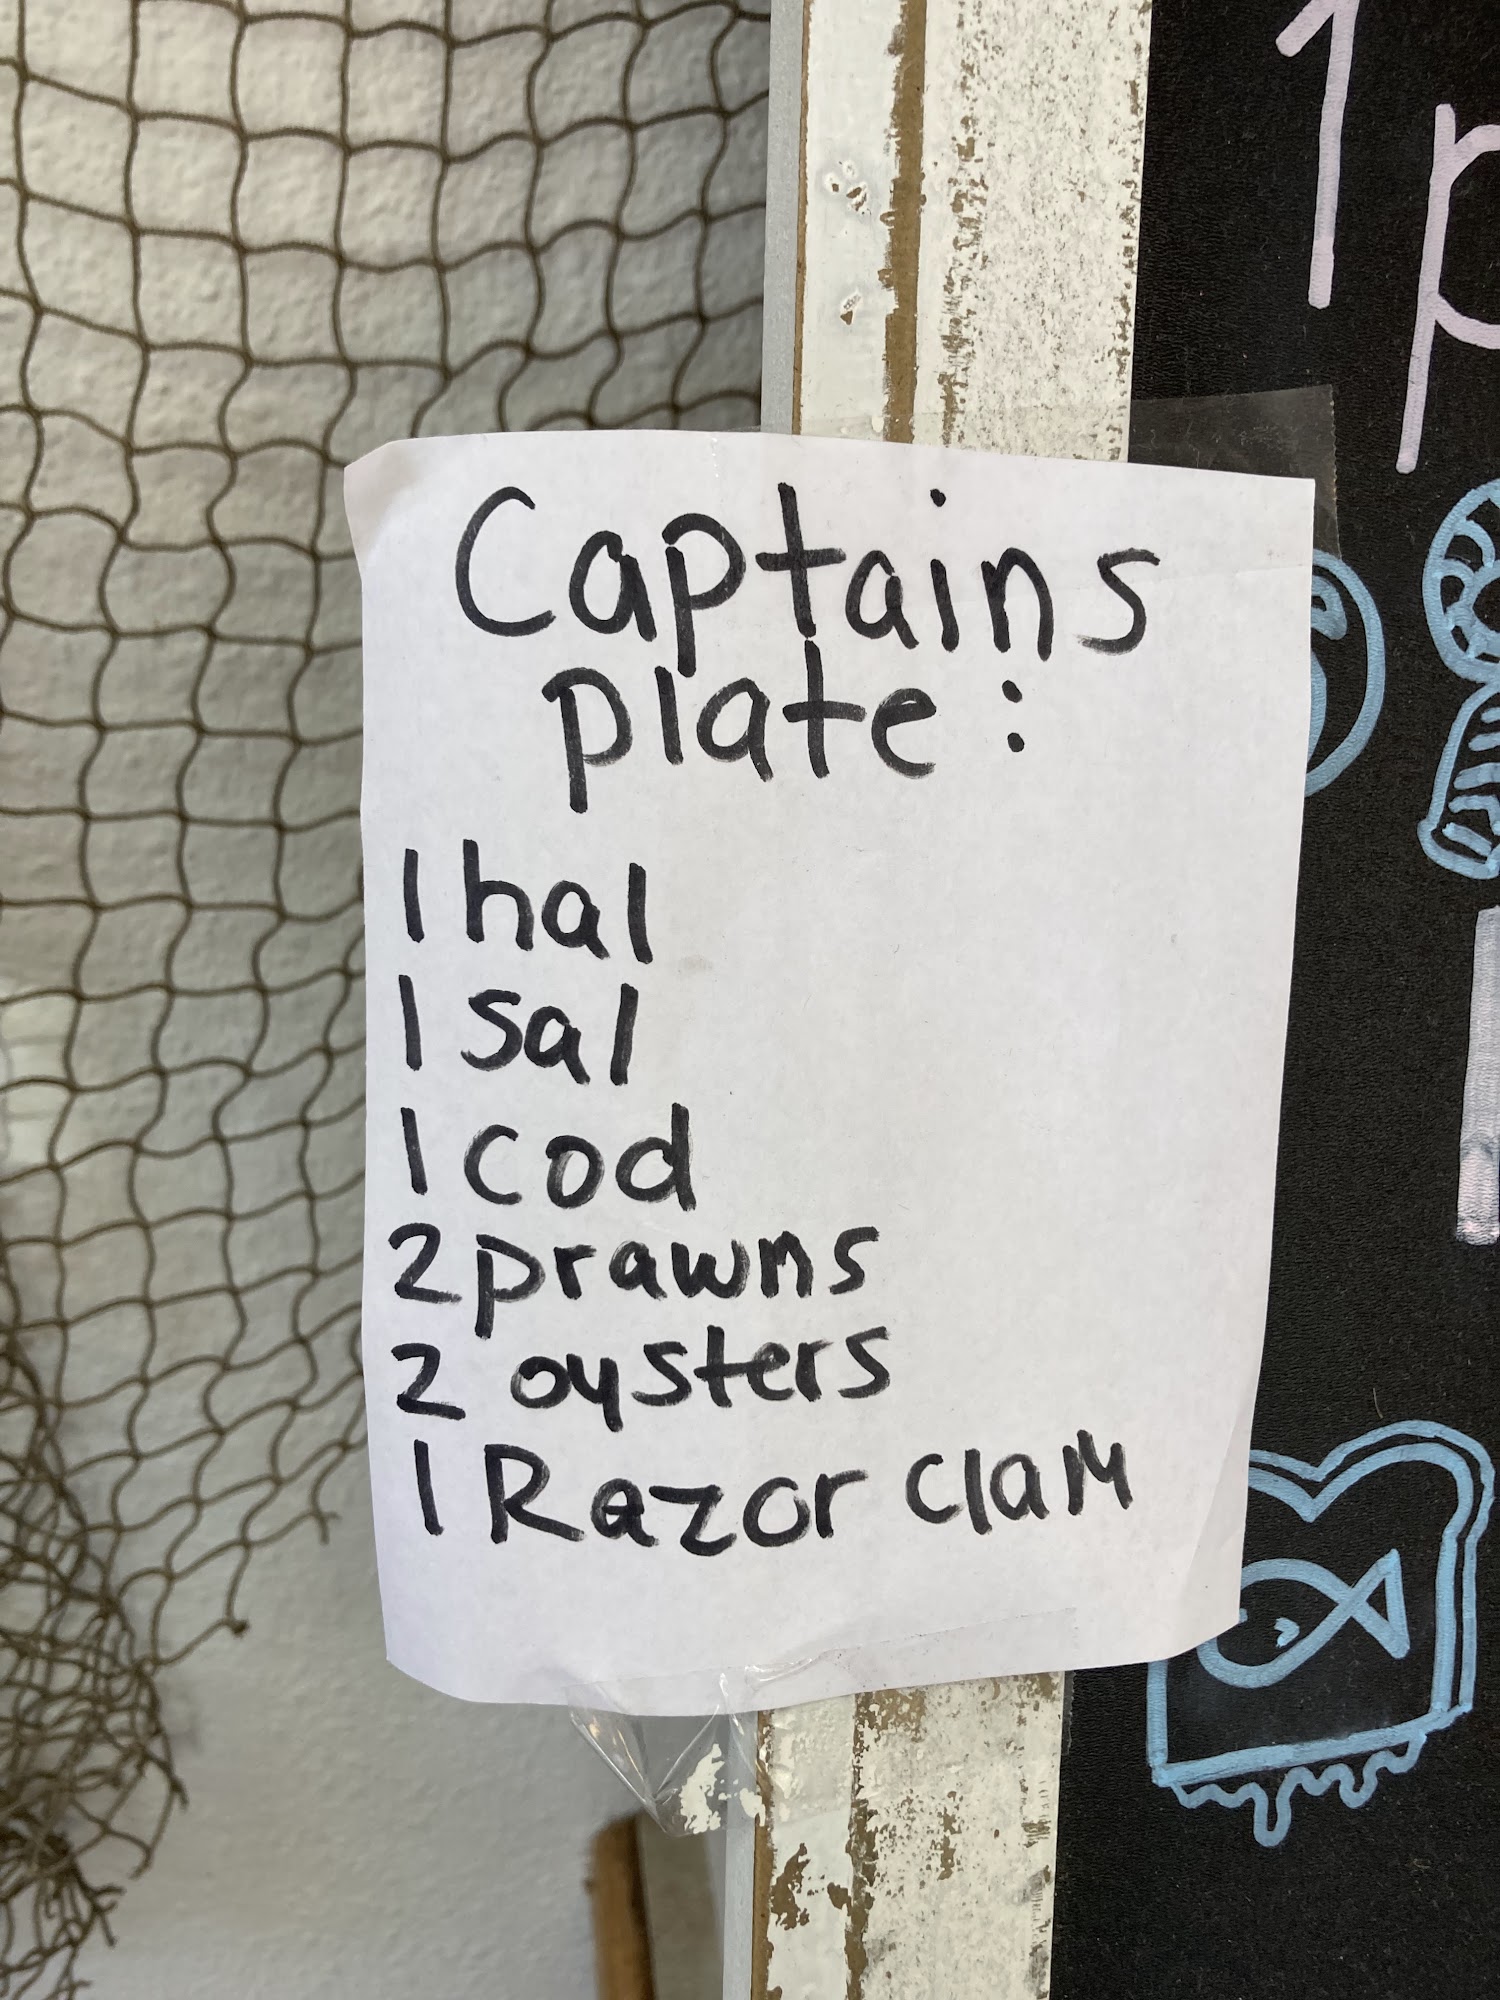 Captains
plate:
1 hal
1 sal
1 cod
2 prawns
2 oysters
1 Razor clam
1 p